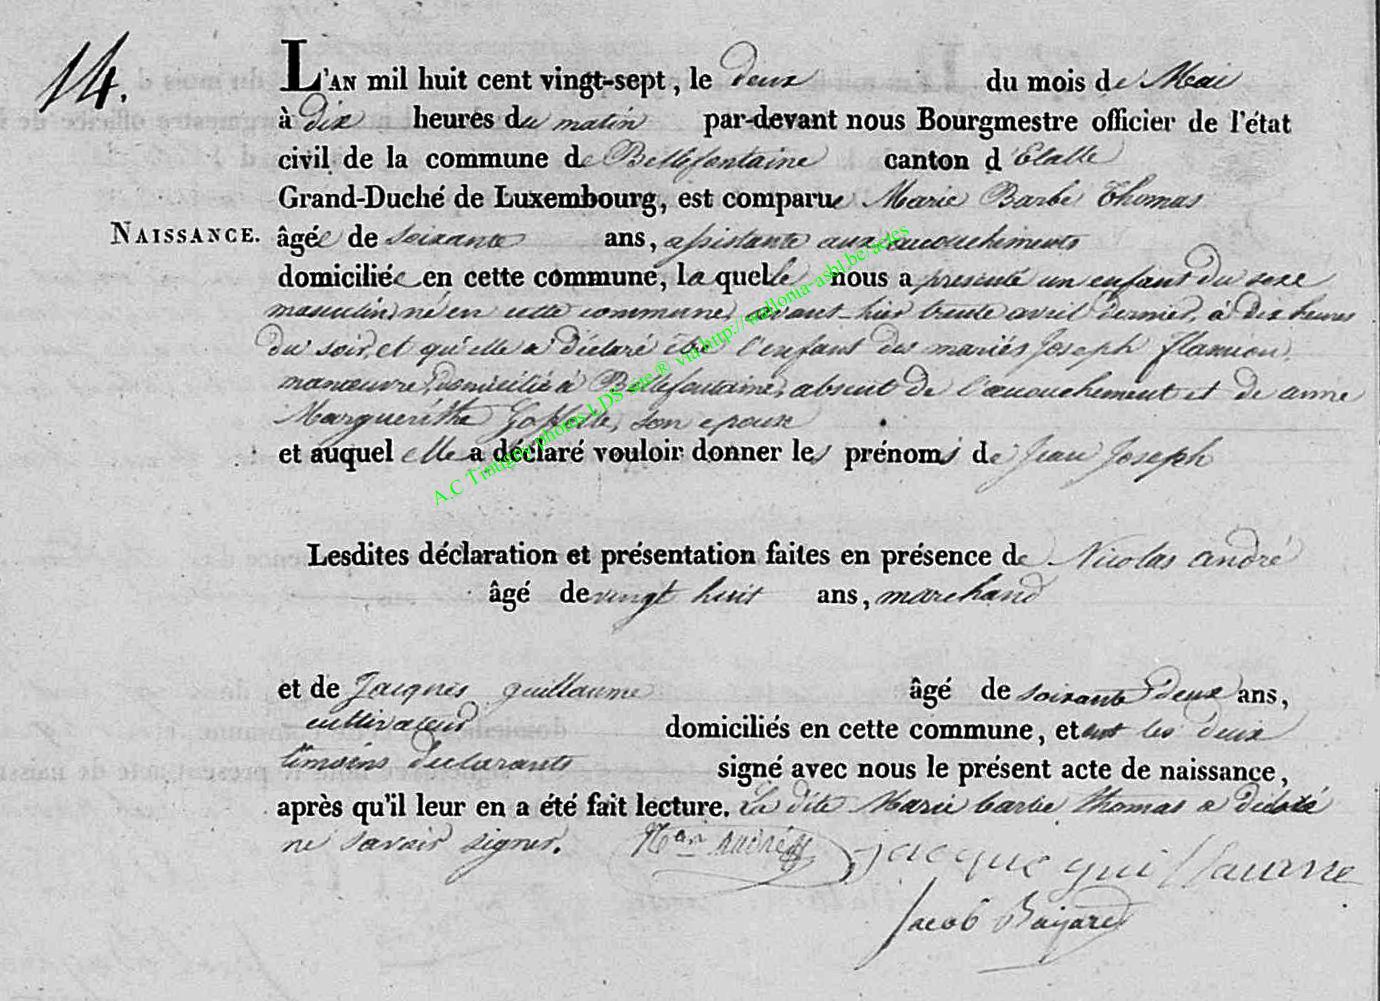 14.
L'AN mil huit cent vingt-sept, le deux du mois de Mai
à dix heures du matin par-devant nous Bourgmestre officier de l'état
civil de la commune de Bellefontaine canton d'Etalle
Grand-Duché de Luxembourg, est comparue Marie Barbe Thomas
NAISSANCE. âgée de soixante ans, assistante aux accouchements
domiciliée en cette commune, laquelle nous a presenté un enfant du sexe
masculin, né en cette commune, avant-hier trente avril dernier, à dix heures
du soir, et qu'elle a déclaré être l'enfant des mariés Joseph
manœuvre, domicilié à Bellefontaine, absent de l'accouchement et de anne
Marguerithe son epoux
et auquel elle a déclaré vouloir donner les prénoms de Jean Joseph
Lesdites déclaration et présentation faites en présence de Nicolas andré
âgé de vingt huit ans, marchand
et de Jacques guillaume âgé de soixante deux ans,
cultivateur domiciliés en cette commune, et ont les deux
témoins déclarants signé avec nous le présent acte de naissance,
après qu'il leur en a été fait lecture. La dite Marie barbe thomas a déclaré
ne savoir signer. Nas andré jacque guillaume
Jacob Bajard
A.C Tintigny photos LDS site ® via http://wallonia-asbl.be/actes